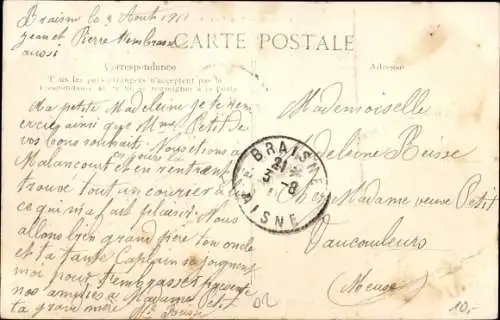 Braisne le 3 Août 1911
Jean et Pierre t'embrasse
aussi
CARTE POSTALE
Correspondance
Adresse
Tous les pays étrangers n'acceptent pas la
Correspondance au se renseigner à la Poste
Ma petite Madeleine je te remercie
ainsi que Mme Petit de
vos bons souhait. Nous étions à
Malancourt ces jours la
et en rentrant
trouvé tout un courrier
ce qui m'a fait plaisir. Nous
allons bien grand père ton oncle
et ta tante Caplain se joignent
moi pour t'embrasser présente
nos amitiés à Madame Petit
ta grand mère
Mademoiselle
Madeleine Beisse
Chez Madame veuve Petit
Vaucouleurs
(Meuse)
BRAISNE
21
3 - 8
AISNE
10,-